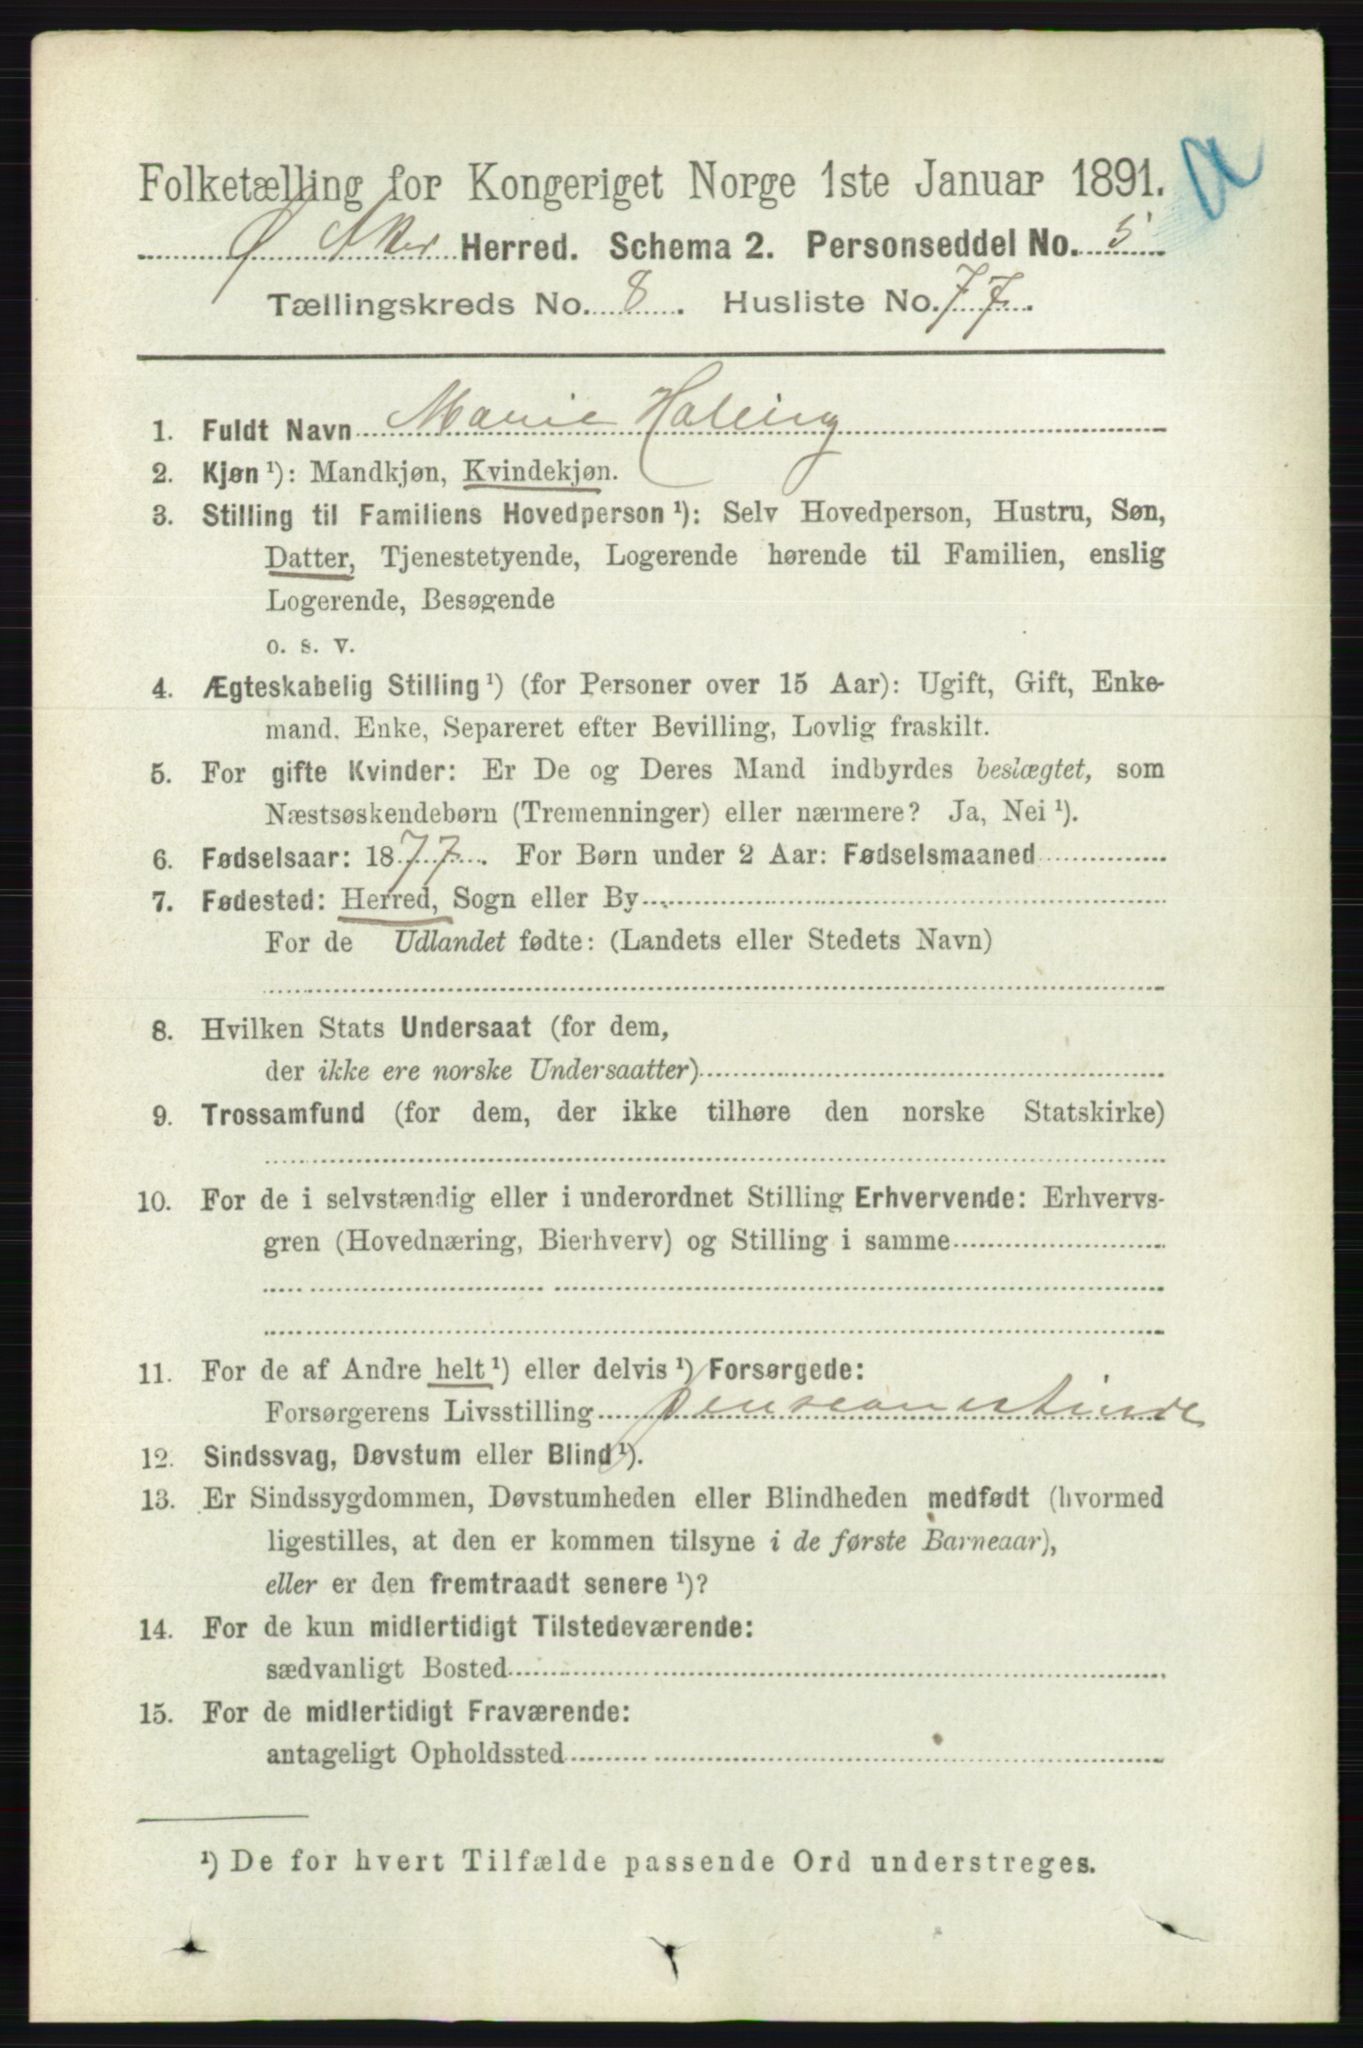 Folketælling for Kongeriget Norge 1ste Januar 1891.
Ø Aker Herred. Schema 2. Personseddel No. 5
Tællingskreds No. 8. Husliste No. 77.
1. Fuldt Navn Marie
2. Kjøn ¹): Mandkjøn, Kvindekjøn.
3. Stilling til Familiens Hovedperson ¹): Selv Hovedperson, Hustru, Søn,
Datter, Tjenestetyende, Logerende hørende til Familien, enslig
Logerende, Besøgende
o. s. v.
4. Ægteskabelig Stilling ¹) (for Personer over 15 Aar): Ugift, Gift, Enke-
mand, Enke, Separeret efter Bevilling, Lovlig fraskilt.
5. For gifte Kvinder: Er De og Deres Mand indbyrdes beslægtet, som
Næstsøskendebørn (Tremenninger) eller nærmere? Ja, Nei ¹).
6. Fødselsaar: 1877. For Børn under 2 Aar: Fødselsmaaned
7. Fødested: Herred, Sogn eller By
For de Udlandet fødte: (Landets eller Stedets Navn)
8. Hvilken Stats Undersaat (for dem,
der ikke ere norske Undersaatter)
9. Trossamfund (for dem, der ikke tilhøre den norske Statskirke)
10. For de i selvstændig eller i underordnet Stilling Erhvervende: Erhvervs-
gren (Hovednæring, Bierhverv) og Stilling i samme
11. For de af Andre helt ¹) eller delvis ¹) Forsørgede:
Forsørgerens Livsstilling
12. Sindssvag, Døvstum eller Blind ¹).
13. Er Sindssygdommen, Døvstumheden eller Blindheden medfødt (hvormed
ligestilles, at den er kommen tilsyne i de første Barneaar),
eller er den fremtraadt senere ¹)?
14. For de kun midlertidigt Tilstedeværende:
sædvanligt Bosted
15. For de midlertidigt Fraværende:
antageligt Opholdssted
¹) De for hvert Tilfælde passende Ord understreges.